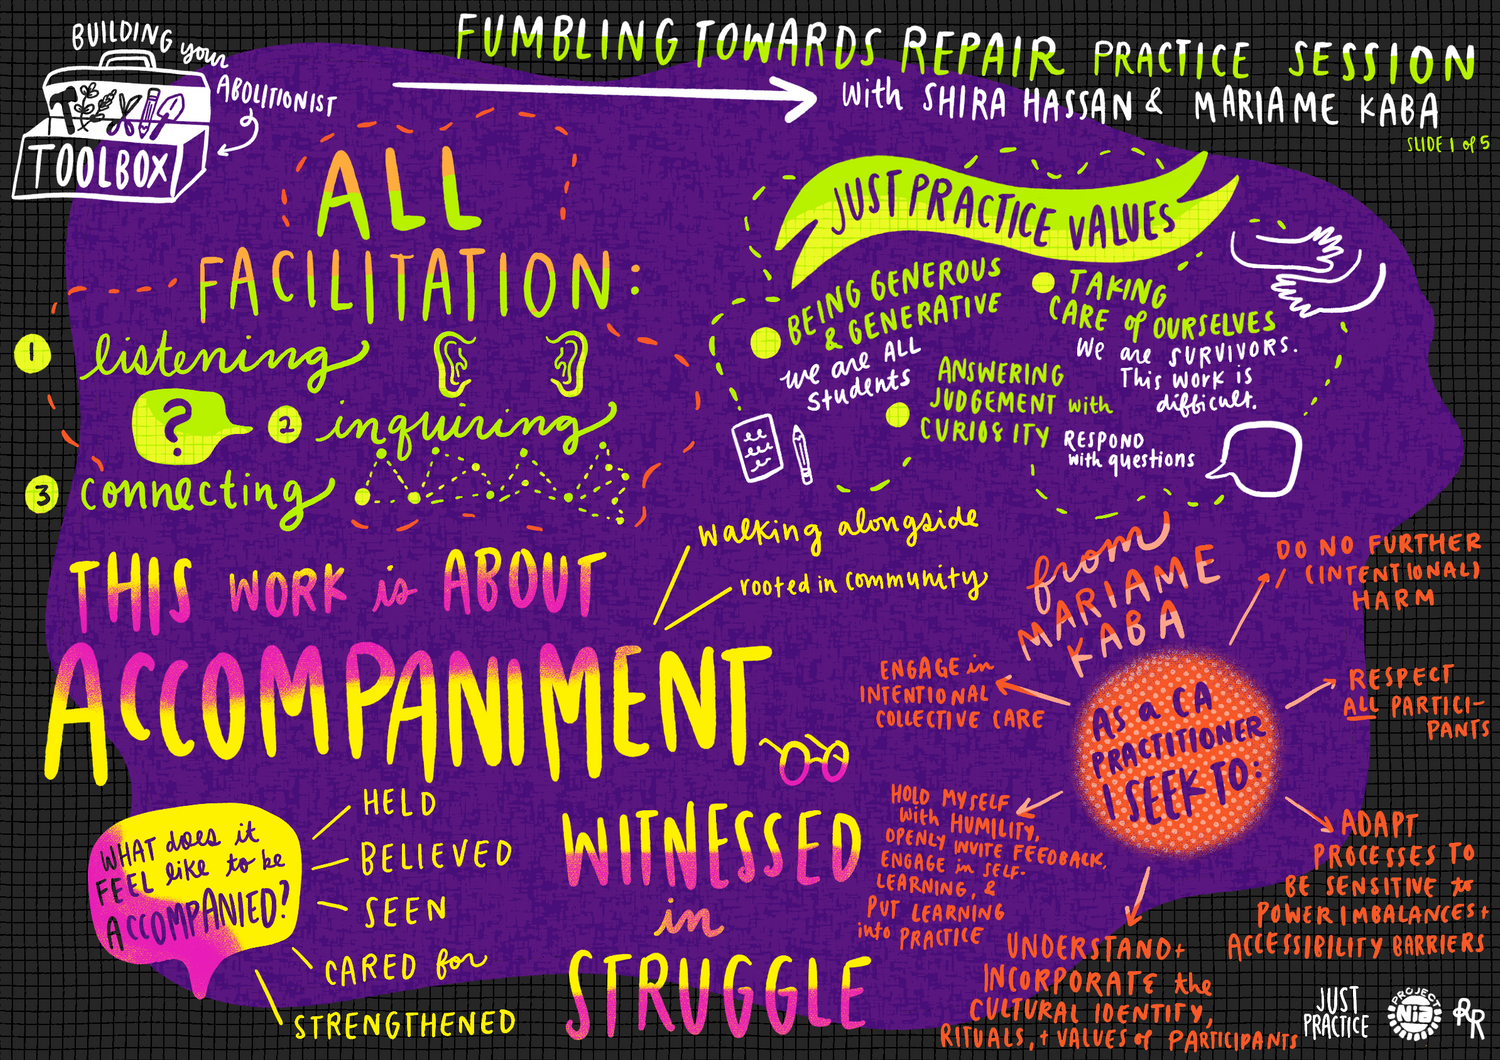 BUILDING your
ABOLITIONIST
TOOLBOX
FUMBLING TOWARDS REPAIR PRACTICE SESSION
with SHIRA HASSAN & MARIAME KABA
SLIDE 1 of 5
ALL
FACILITATION:
1 listening
? 2 inquiring
3 connecting
JUST PRACTICE VALUES
BEING GENEROUS
& GENERATIVE
we are ALL
Students
TAKING
CARE of OURSELVES
We are SURVIVORS.
This work is
difficult.
ANSWERING
JUDGEMENT with
CURIOSITY
RESPOND
with questions
THIS WORK is ABOUT
ACCOMPANIMENT
walking alongside
rooted in community
WHAT does it
FEEL like to be
ACCOMPANIED?
HELD
BELIEVED
SEEN
CARED for
STRENGTHENED
WITNESSED
in
STRUGGLE
from
MARIAME
KABA
AS a CA
PRACTITIONER
I SEEK TO:
DO NO FURTHER
(INTENTIONAL)
HARM
RESPECT
ALL PARTICI-
PANTS
ADAPT
PROCESSES TO
BE SENSITIVE to
POWER IMBALANCES +
ACCESSIBILITY BARRIERS
UNDERSTAND +
INCORPORATE the
CULTURAL IDENTITY,
RITUALS, + VALUES of PARTICIPANTS
HOLD MYSELF
with HUMILITY,
OPENLY INVITE FEEDBACK,
ENGAGE in SELF-
LEARNING, &
PUT LEARNING
into PRACTICE
ENGAGE in
INTENTIONAL
COLLECTIVE CARE
JUST
PRACTICE
PROJECT
NIA
RR